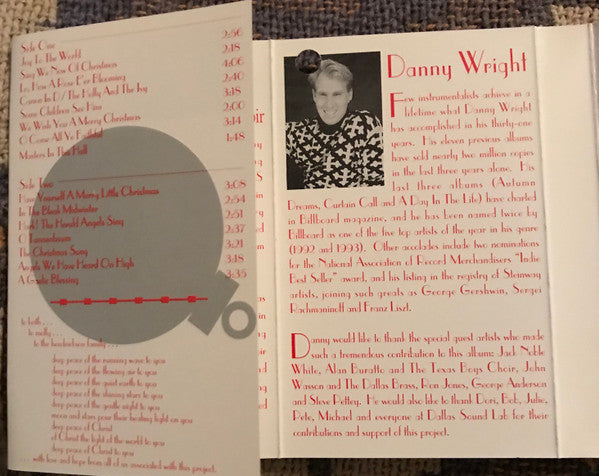 Side One
Joy To The World 2:56
Sing We Now Of Christmas 2:18
Lo, How A Rose E'er Blooming 4:06
Canon In D / The Holly And The Ivy 2:40
Some Children See Him 3:18
We Wish You A Merry Christmas 2:00
O Come All Ye Faithful 3:14
Masters In This Hall 1:48
Side Two
Have Yourself A Merry Little Christmas 3:08
In The Bleak Midwinter 2:54
Hark! The Herald Angels Sing 2:51
O Tannenbaum 2:37
The Christmas Song 3:21
Angels We Have Heard On High 3:18
A Gaelic Blessing 3:35
to beth . . .
to molly . . .
to the hendrickson family . . .
deep peace of the running wave to you
deep peace of the flowing air to you
deep peace of the quiet earth to you
deep peace of the shining stars to you
deep peace of the gentle night to you
moon and stars pour their healing light on you
deep peace of Christ
of Christ the light of the world to you
deep peace of Christ to you
. . . with love and hope from all of us associated with this project.
Danny Wright
Few instrumentalists achieve in a
lifetime what Danny Wright
has accomplished in his thirty-one
years. His eleven previous albums
have sold nearly two million copies
in the last three years alone. His
last three albums (Autumn
Dreams, Curtain Call and A Day In The Life) have charted
in Billboard magazine, and he has been named twice by
Billboard as one of the five top artists of the year in his genre
(1992 and 1993). Other accolades include two nominations
for the National Association of Record Merchandisers "Indie
Best Seller" award, and his listing in the registry of Steinway
artists, joining such greats as George Gershwin, Sergei
Rachmaninoff and Franz Liszt.
Danny would like to thank the special guest artists who made
such a tremendous contribution to this album: Jack Noble
White, Alan Buratto and The Texas Boys Choir, John
Wasson and The Dallas Brass, Ron Jones, George Anderson
and Steve Pettey. He would also like to thank Dori, Bob, Julie,
Pete, Michael and everyone at Dallas Sound Lab for their
contributions and support of this project.